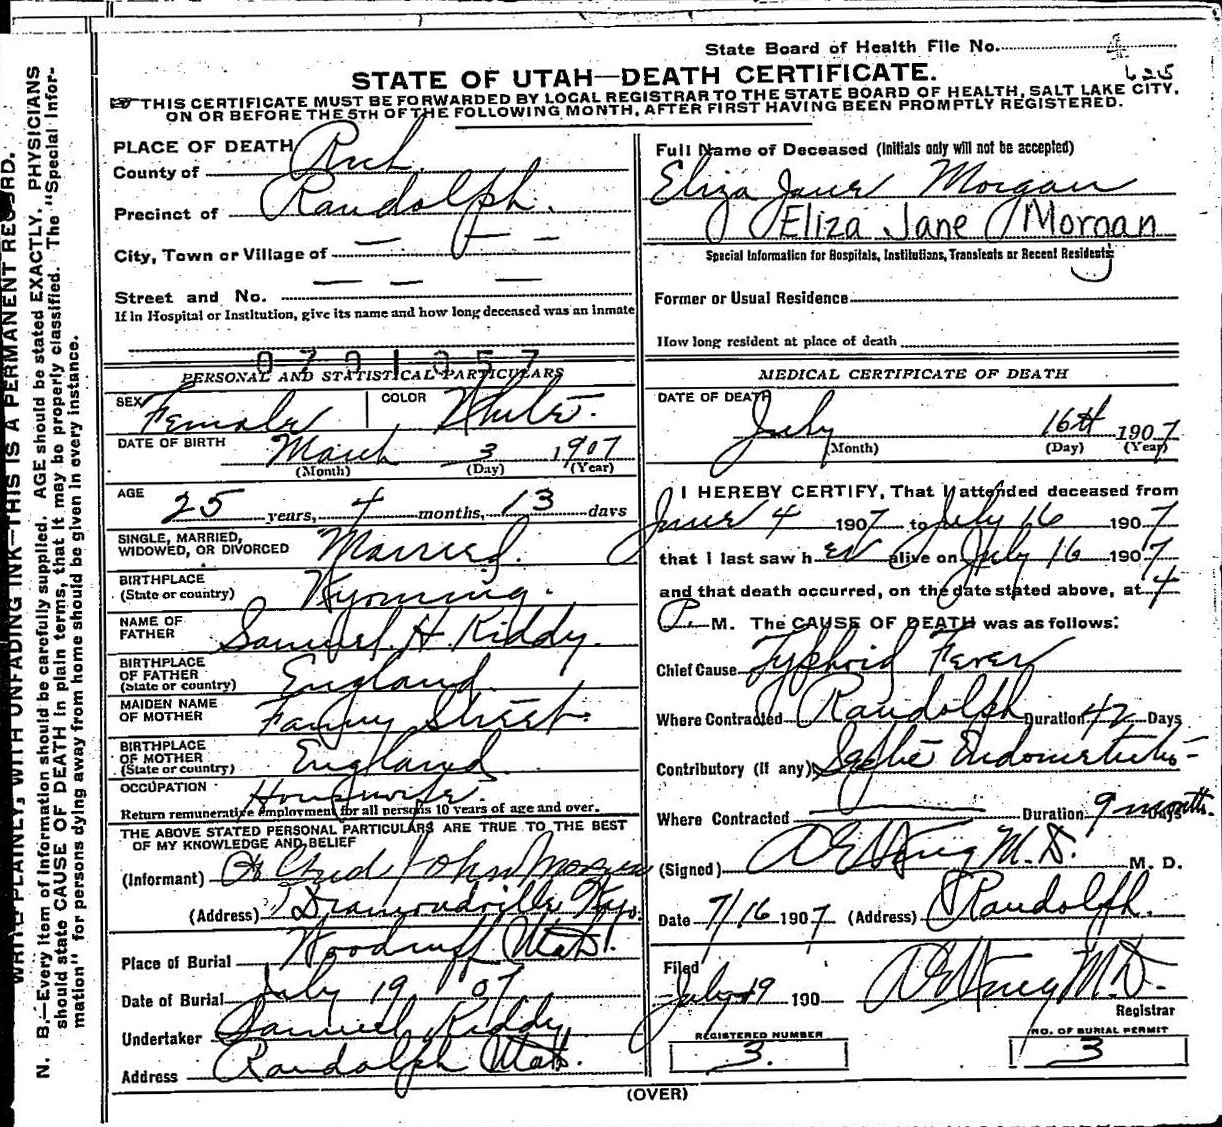 State Board of Health File No. 4
625
STATE OF UTAH—DEATH CERTIFICATE.
THIS CERTIFICATE MUST BE FORWARDED BY LOCAL REGISTRAR TO THE STATE BOARD OF HEALTH, SALT LAKE CITY,
ON OR BEFORE THE 5TH OF THE FOLLOWING MONTH, AFTER FIRST HAVING BEEN PROMPTLY REGISTERED.
WRITE PLAINLY, WITH UNFADING INK—THIS IS A PERMANENT RECORD.
N. B.—Every item of information should be carefully supplied. AGE should be stated EXACTLY. PHYSICIANS
should state CAUSE OF DEATH in plain terms, that it may be properly classified. The "Special Infor-
mation" for persons dying away from home should be given in every instance.
PLACE OF DEATH
County of Rich.
Precinct of Randolph.
City, Town or Village of — — —
Street and No. — — —
If in Hospital or Institution, give its name and how long deceased was an inmate
0701357
PERSONAL AND STATISTICAL PARTICULARS
SEX Female COLOR White.
DATE OF BIRTH March 3 1907
(Month) (Day) (Year)
AGE 25 years, 4 months, 13 days
SINGLE, MARRIED,
WIDOWED, OR DIVORCED Married.
BIRTHPLACE
(State or country) Wyoming.
NAME OF
FATHER Samuel H. Kiddy.
BIRTHPLACE
OF FATHER
(State or country) England.
MAIDEN NAME
OF MOTHER Fanny Street.
BIRTHPLACE
OF MOTHER
(State or country) England.
OCCUPATION Housewife.
Return remunerative employment for all persons 10 years of age and over.
THE ABOVE STATED PERSONAL PARTICULARS ARE TRUE TO THE BEST
OF MY KNOWLEDGE AND BELIEF
(Informant) John Morgan
(Address) Diamondville Wyo.
Place of Burial Woodruff Utah.
Date of Burial July 19 07
Undertaker Samuel Kiddy
Address Randolph Utah.
Full Name of Deceased (Initials only will not be accepted)
Eliza Jane Morgan
Eliza Jane Morgan
Special Information for Hospitals, Institutions, Transients or Recent Residents:
Former or Usual Residence
How long resident at place of death
MEDICAL CERTIFICATE OF DEATH
DATE OF DEATH
July 16th 1907
(Month) (Day) (Year)
I HEREBY CERTIFY, That I attended deceased from
June 4 1907 to July 16 1907
that I last saw h er alive on July 16 1907
and that death occurred, on the date stated above, at 4
P. M. The CAUSE OF DEATH was as follows:
Chief Cause Typhoid Fever
Where Contracted Randolph Duration 42 Days
Contributory (If any) Septic Endometritis
Where Contracted — Duration 9 months. Days
(Signed) M.D. M. D.
Date 7/16 1907 (Address) Randolph.
Filed
July 19 190 M.D.
Registrar
REGISTERED NUMBER
3.
NO. OF BURIAL PERMIT
3
(OVER)